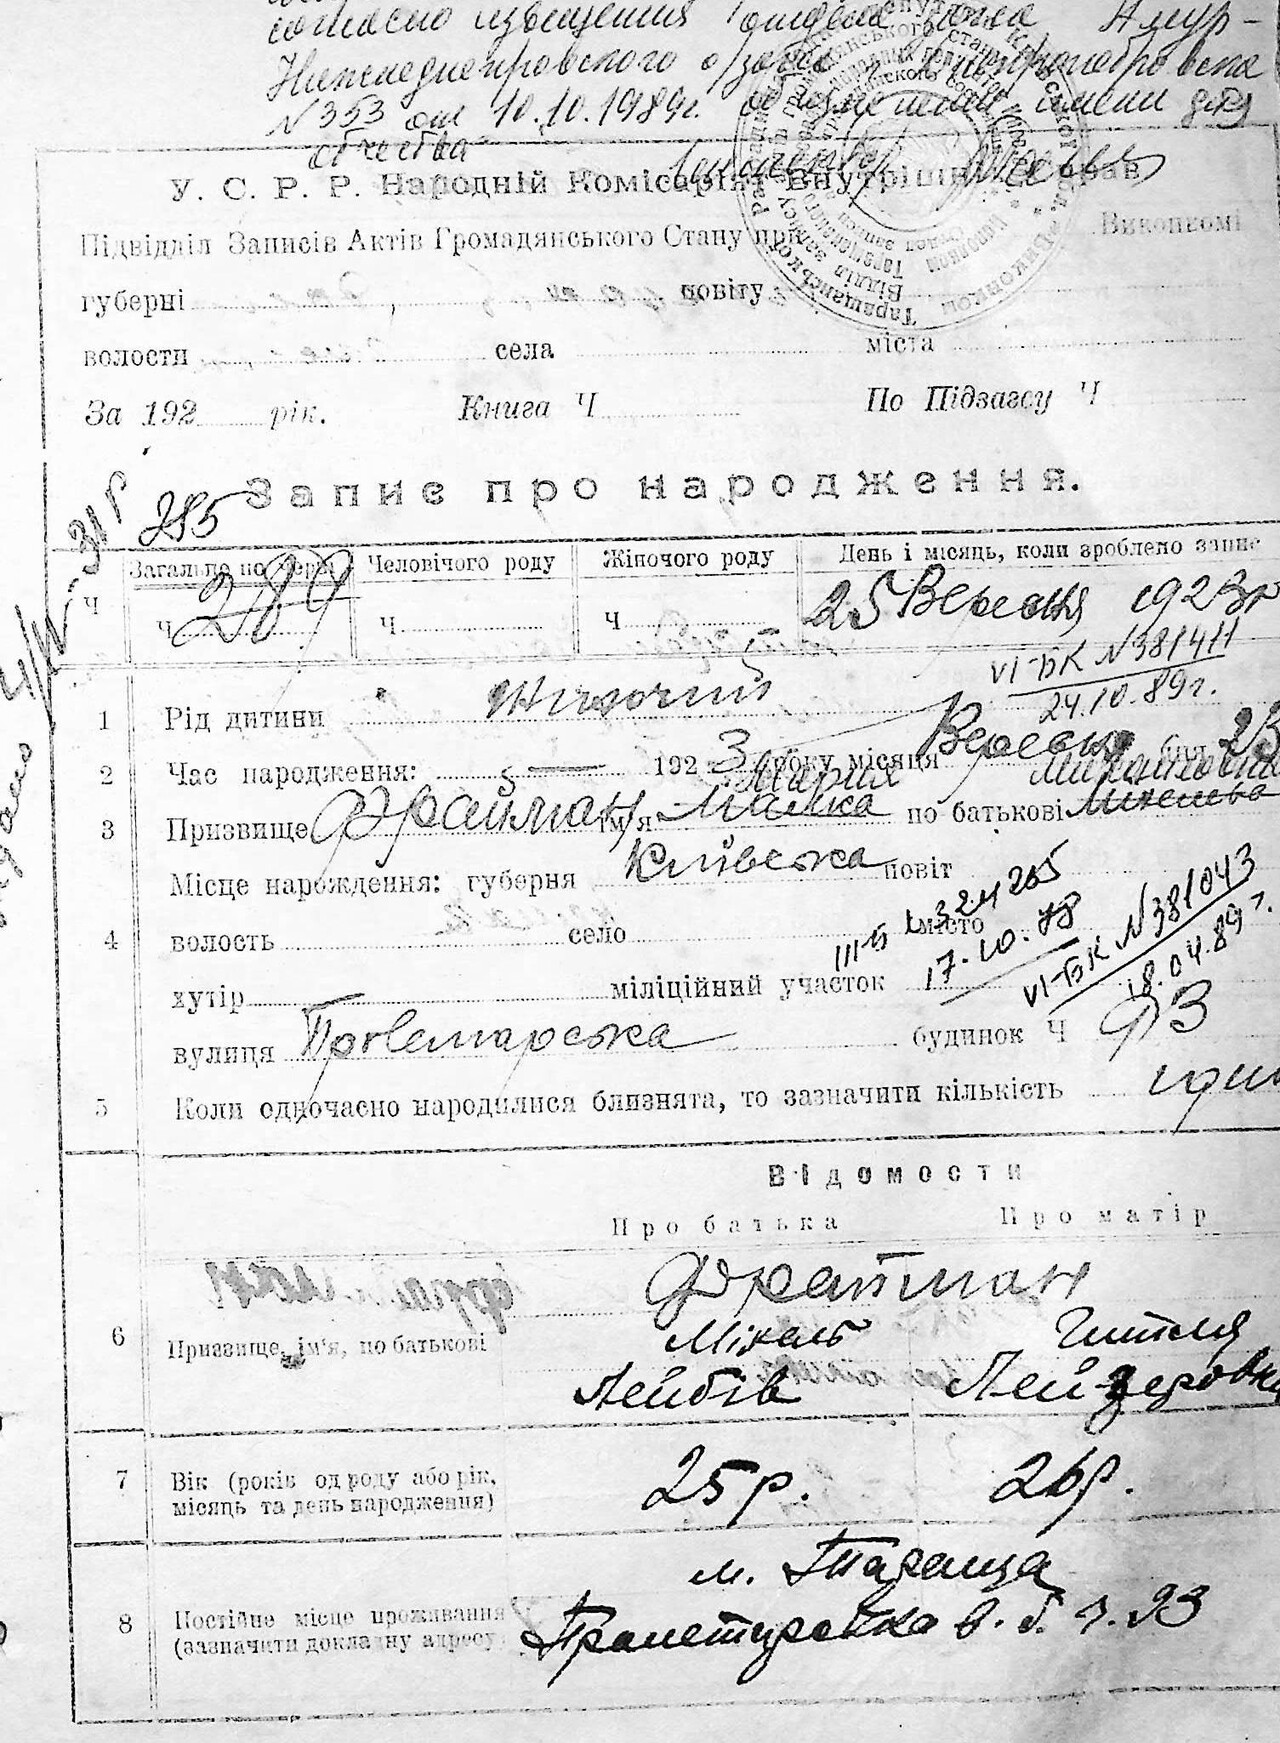 согласно извещения отдела загса Амур-
Нижнеднепровского р/загса г. Днепропетровска
N 353 от 10.10.1989г. о изменении имени
отчества
У. С. Р. Р. Народній Комісаріят Внутрішніх Справ
Підвідділ Записів Актів Громадянського Стану при Виконкомі
губерні повіту
волости села міста
За 192 рік. Книга Ч По Підзагсу Ч
Запис про народження.
285
Загально по черзі Человічого роду Жіночого роду День і місяць, коли зроблено запис
Ч Ч 289 Ч Ч 25 Вересня 1923р
VI-БК N381411
24.10.89г.
1 Рід дитини Жіночий
2 Час народження: 1923 року місяця Вересня дня 23
Мария Михайловна
3 Призвище Фрайман ім'я Малка по батькові
Місце нарождення: губерня Київська повіт
III-Б
17.10.78
VI-БК N381043
18.04.89г.
4 волость село місто
хутір міліційний участок
вулиця Пролетарська будинок Ч 93
5 Коли одночасно народилися близнята, то зазначити кількість
Відомости
Про батька Про матір
Фрайман
6 Призвище, ім'я, по батькові Мікель Гитля
Лейбів Лейзеровна
7 Вік (років од роду або рік, місяць та день народження) 25 р. 26 р.
м. Тараща
8 Постійне місце проживання (зазначити докладну адресу) Пролетарська в. б. ч. 93